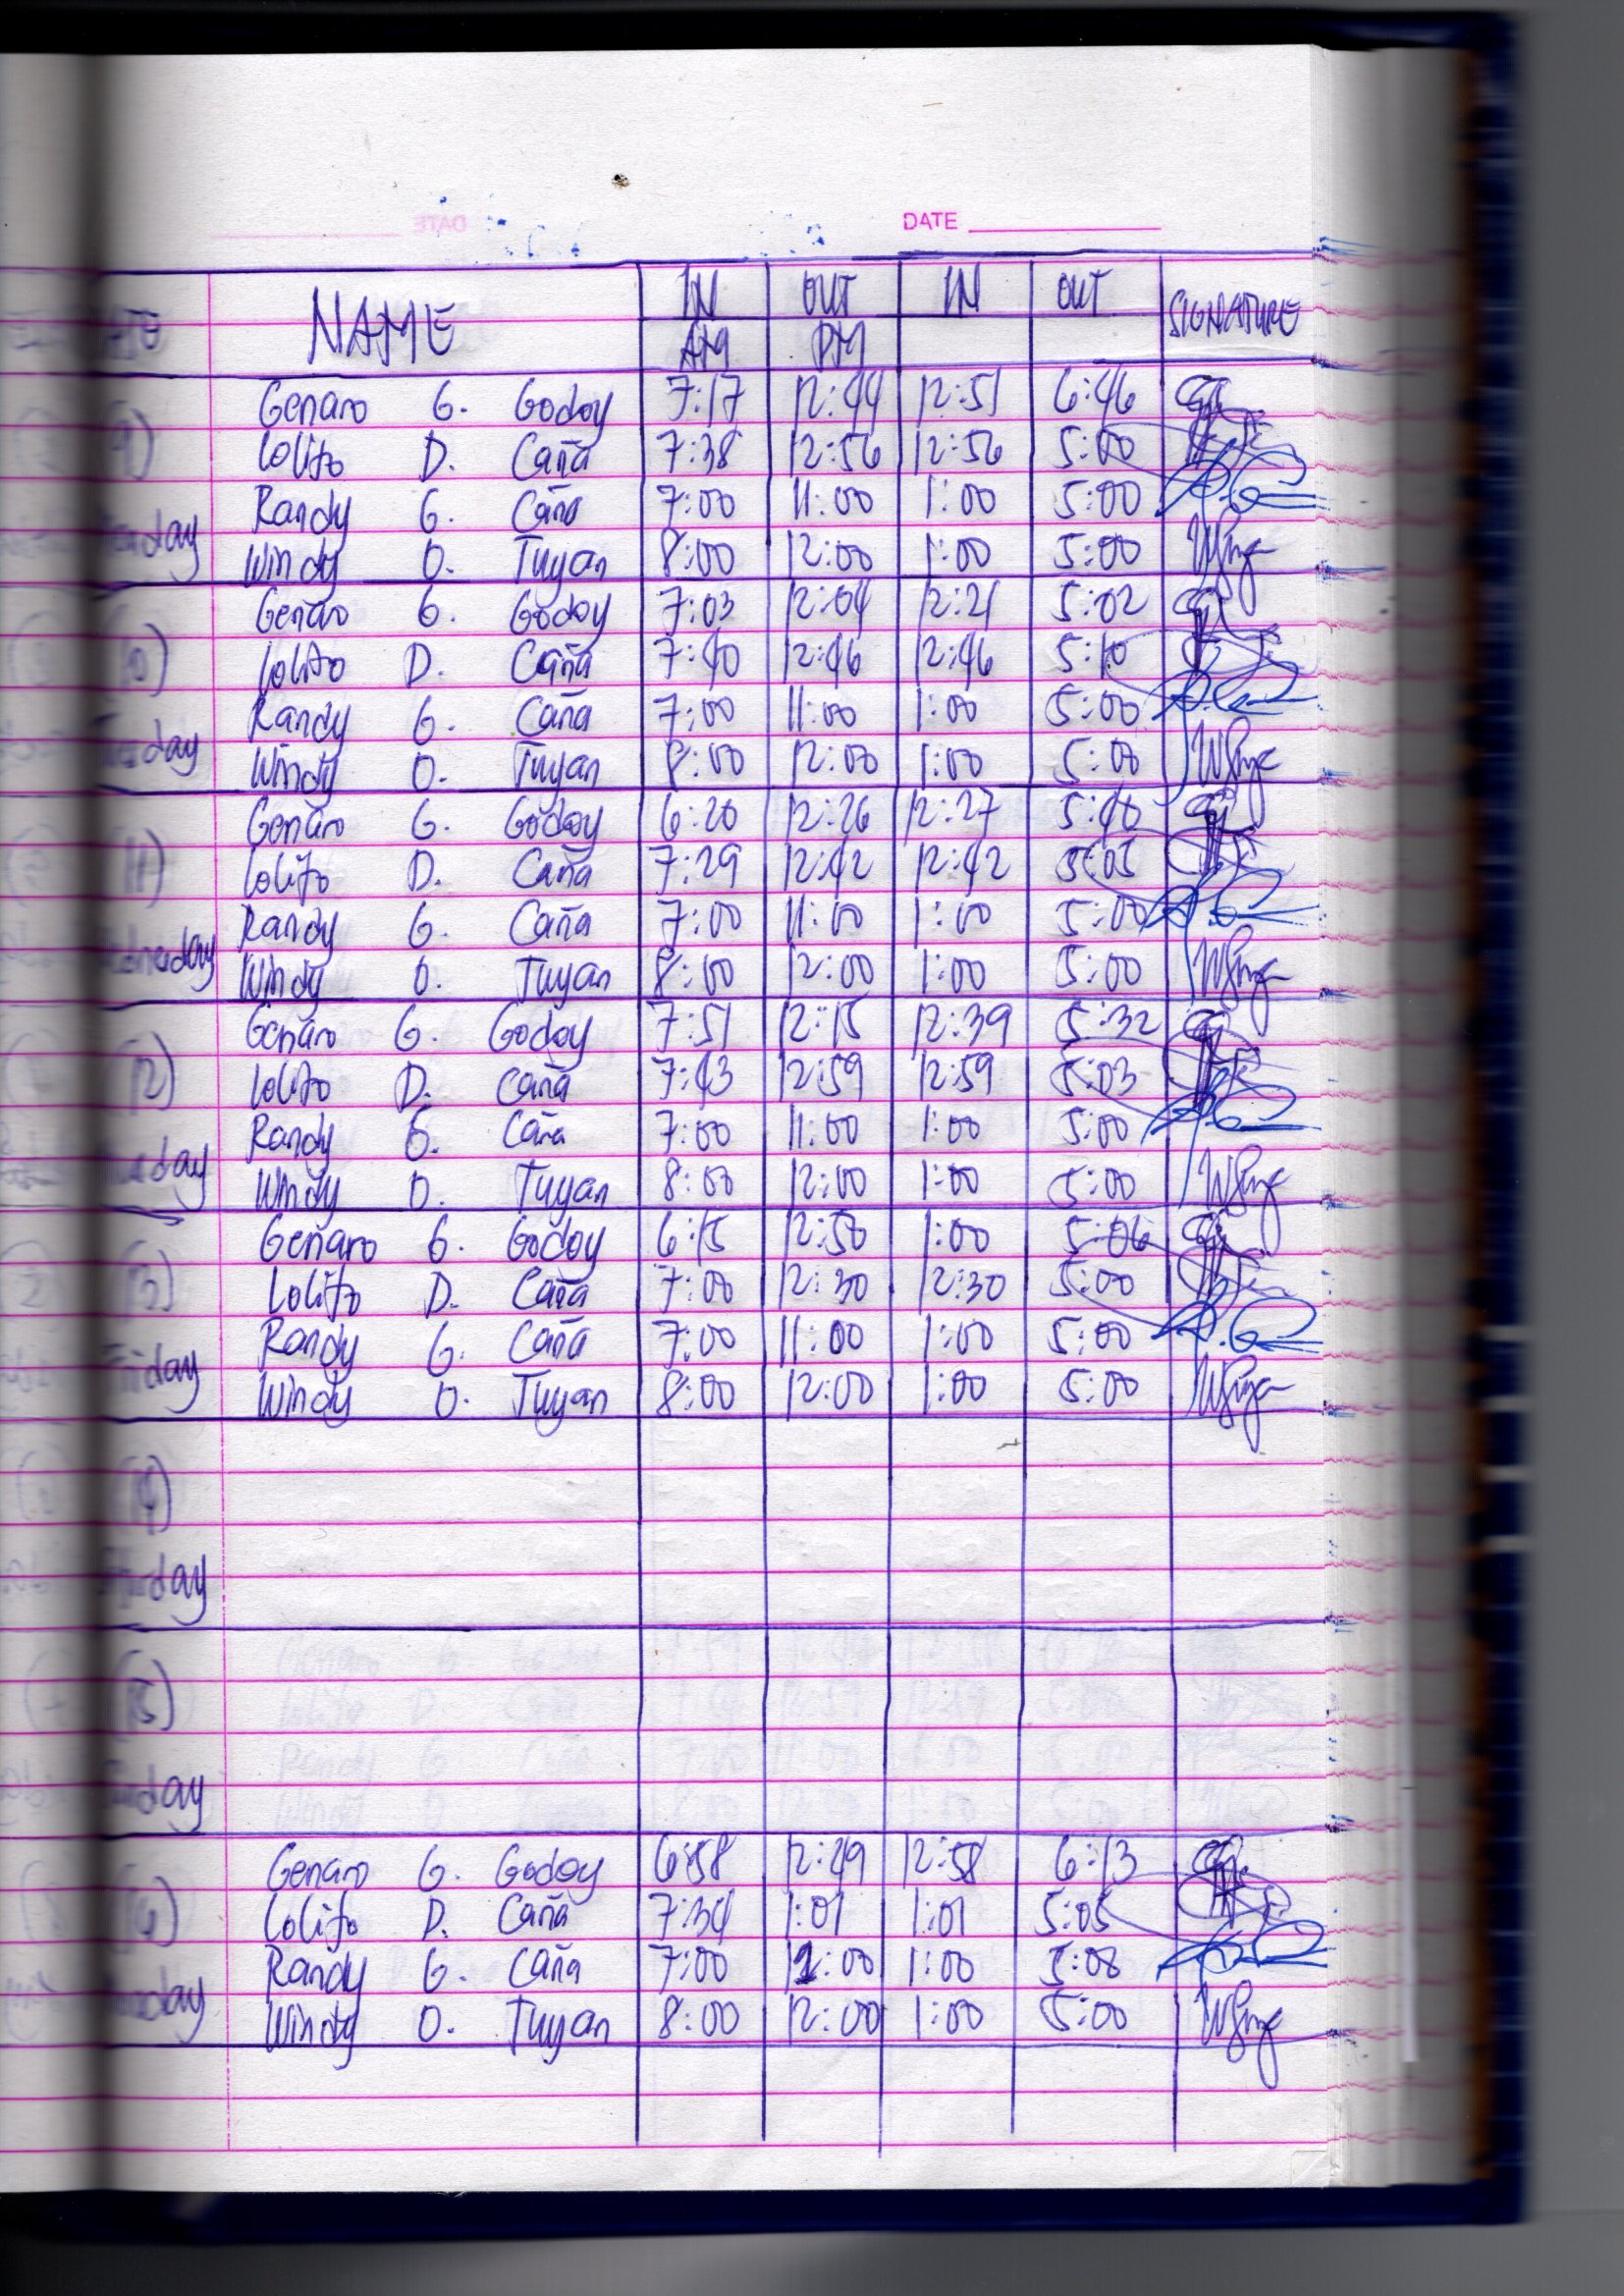 DATE
NAME IN OUT IN OUT SIGNATURE
AM PM
Genaro G. Godoy 7:17 12:44 12:51 6:46
(9) Lolito D. Caña 7:38 12:56 12:56 5:00
Randy G. Caña 7:00 11:00 1:00 5:00
day Windy O. Tuyan 8:00 12:00 1:00 5:00
Genaro G. Godoy 7:03 12:04 12:21 5:02
(10) Lolito D. Caña 7:40 12:46 12:46 5:10
Randy G. Caña 7:00 11:00 1:00 5:00
day Windy O. Tuyan 8:00 12:00 1:00 5:00
Genaro G. Godoy 6:20 12:26 12:27 5:40
(11) Lolito D. Caña 7:29 12:42 12:42 5:05
Randy G. Caña 7:00 11:00 1:00 5:00
day Windy O. Tuyan 8:00 12:00 1:00 5:00
Genaro G. Godoy 7:51 12:15 12:39 5:32
(12) Lolito D. Caña 7:43 12:59 12:59 5:03
Randy G. Caña 7:00 11:00 1:00 5:00
day Windy O. Tuyan 8:00 12:00 1:00 5:00
Genaro G. Godoy 6:15 12:50 1:00 5:06
Lolito D. Caña 7:00 12:30 12:30 5:00
Randy G. Caña 7:00 11:00 1:00 5:00
Friday Windy O. Tuyan 8:00 12:00 1:00 5:00
day
day
Genaro G. Godoy 6:58 12:49 12:58 6:13
Lolito D. Caña 7:34 1:01 1:01 5:05
Randy G. Caña 7:00 12:00 1:00 5:08
day Windy O. Tuyan 8:00 12:00 1:00 5:00